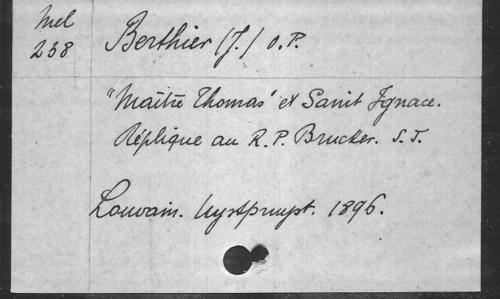 Mel
238
Berthier (J.) O.P.
"Maître Thomas" et Saint Ignace.
Réplique au R.P. Brucker. S.J.
Louvain. Uystpruyst. 1896.